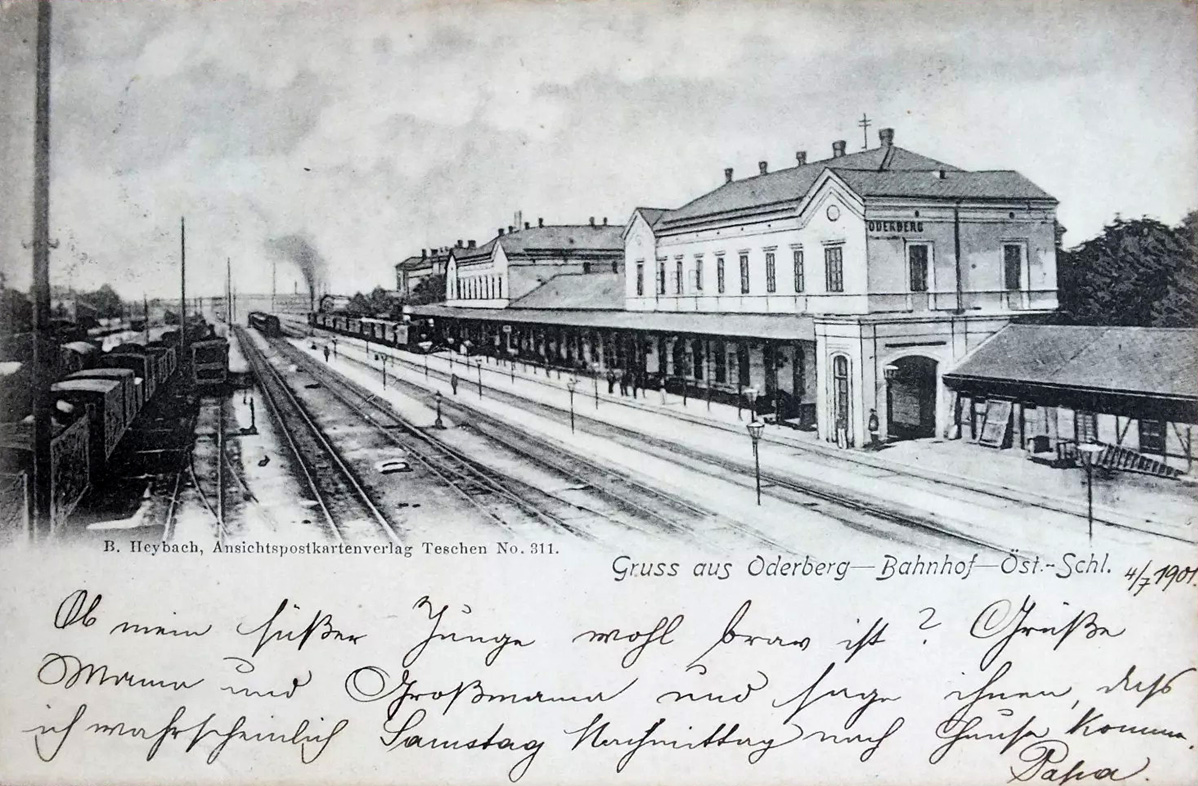 ODERBERG
B. Heybach, Ansichtspostkartenverlag Teschen No. 311.
Gruss aus Oderberg—Bahnhof—Öst.-Schl.
4/7 1901.
Ob mein süßer Junge wohl brav ist? Grüße
Mama und Großmama und sage ihnen, daß
ich wahrscheinlich Samstag Nachmittag nach Hause komme.
Papa.